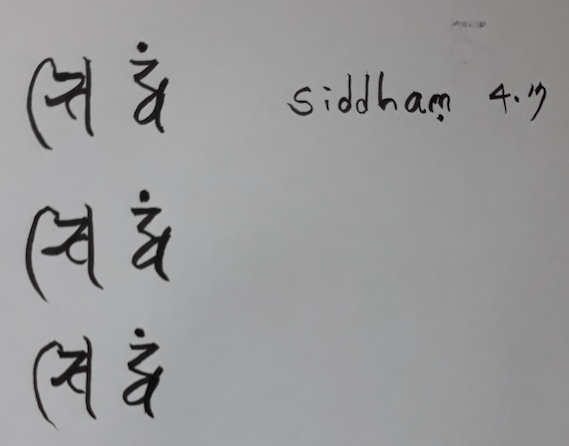 𑖭𑖰𑖟𑖿𑖠𑖽 siddhaṃ
𑖭𑖰𑖟𑖿𑖠𑖽
𑖭𑖰𑖟𑖿𑖠𑖽